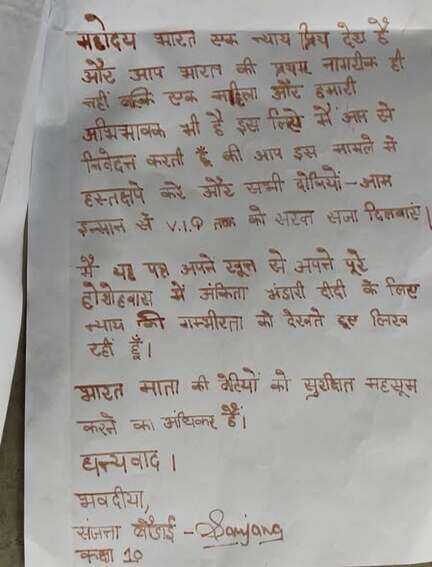 महोदय भारत एक न्याय प्रिय देश है
और आप भारत की प्रथम नागरीक ही
नहीं बल्कि एक महिला और हमारी
अभिभावक भी है इस लिये मैं आप से
निवेदन करती हूँ की आप इस मामले में
हस्तक्षेप करें और सभी दोषियों - आम
इन्सान से V.I.P तक को सख्त सजा दिलवाएं।
मैं यह पत्र अपने खून से अपने पूरे
होशोहवास में अंकिता भंडारी दीदी के लिए
न्याय की गम्भीरता को देखते हुए लिख
रही हूँ।
भारत माता की बेटियों को सुरक्षित महसूस
करने का अधिकार है।
धन्यवाद।
भवदीया,
संजना - Sanjana
कक्षा 10